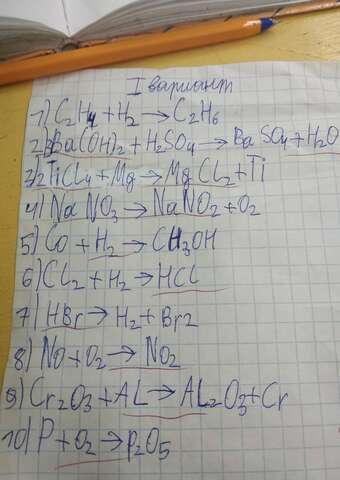 I вариант
1) C2H4 + H2 → C2H6
2) Ba(OH)2 + H2SO4 → BaSO4 + H2O
3) 2TiCL4 + Mg → MgCL2 + Ti
4) NaNO3 → NaNO2 + O2
5) CO + H2 → CH3OH
6) CL2 + H2 → HCL
7) HBr → H2 + Br2
8) NO + O2 → NO2
9) Cr2O3 + AL → AL2O3 + Cr
10) P + O2 → P2O5